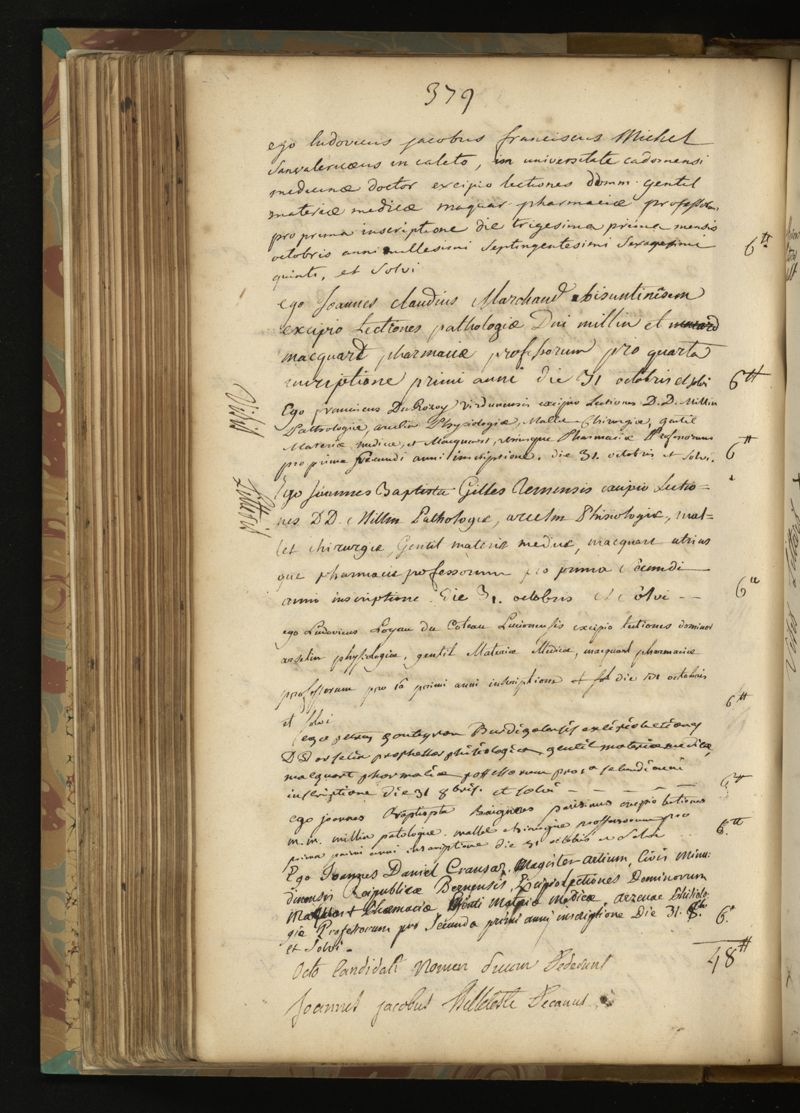 379
ego ludovicus jacobus franciscus Michel
Sanvalericæus in caleto, in universitate cadomensi
medicinæ doctor excipio lectiones ddomm. gentil
materiæ medicæ macquar pharmaciæ professorum
pro prima inscriptione die trigesima prima mensis
octobris anni millesimi septingentesimi sexagesimi
quinti, et solvi
6tt
ego Joannes claudius Marchand bisuntinensem
excipio Lectiones pathologiæ Dni millin et
macquart pharmaciæ professorum pro quarta
inscriptione primi anni die 31 octobris et solvi
6tt
Vidal
Ego franciscus DuRozoy Virdunensis excipio Lectiones D.D. Millin
Pathologiæ, arcelin Physiologiæ, Mallet Chirurgiæ, gentil
Materiæ medicæ, et Macquart, utriusque Pharmaciæ Professorum
pro prima secundi anni inscriptione. die 31. octobris et solvi.
6tt
Ego Joannes Baptista Gilles Remensis excipio Lectio-
nes DD. Millin Pathologiæ, arcelin Phisiologiæ, mal-
let chirurgiæ, Gentil materiæ medicæ, macquart utrius
que pharmaciæ professorum pro prima secundi
anni inscriptione. Die 31. octobris et solvi --
6tt
ego Ludovicus Loyau du Coteau Lucionensis excipio lectiones dominor
arcelin physiologiæ, gentil Materiæ Medicæ, macquart pharmaciæ
professorum pro 1a primi anni inscriptione die 31 octobris
et solvi
6tt
ego petrus gonteyron Burdigalensis excipio lectiones
DD arcelin physiologiæ, gentil materiæ medicæ,
macquart pharmaciæ professorum pro 1a secundi anni
inscriptione die 31 8bris. et solvi - - - -
6tt
ego joannes Baptista parisinus excipio lectiones
m.m. millin patologiæ mallet chirurgiæ professorum pro
prima primi anni inscriptione die 31 octobris et solvi
6tt
Ego Joannes Daniel Crausaz, Magister artium, Civis Minni-
dunensis Reipublicæ Bernensis, Excipio Lectiones Dominorum
Macquart Pharmaciæ Gentil Materiæ Medicæ, Phisiolo-
giæ Professorum pro Secunda primi anni inscriptione Die 31. 8bris
et Solvi.
6
48tt
Octo Candidati Nomen suum Dederunt
Joannes jacobus Belleteste Decanus